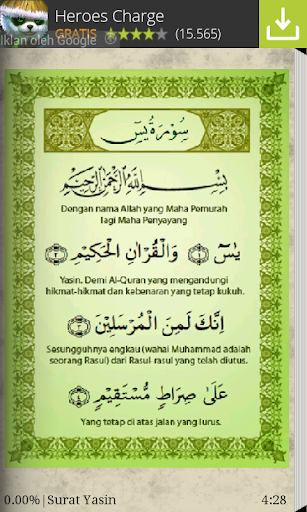 Heroes Charge
GRATIS (15.565)
Iklan oleh Google
سُوْرَةُ يٰسٓ
بِسْمِ اللّٰهِ الرَّحْمٰنِ الرَّحِيْمِ
Dengan nama Allah yang Maha Pemurah
lagi Maha Penyayang
يٰسٓ ﴿١﴾ وَالْقُرْاٰنِ الْحَكِيْمِ ﴿٢﴾
Yasin. Demi Al-Quran yang mengandungi
hikmat-hikmat dan kebenaran yang tetap kukuh.
اِنَّكَ لَمِنَ الْمُرْسَلِيْنَ ﴿٣﴾
Sesungguhnya engkau (wahai Muhammad adalah
seorang Rasul) dari Rasul-rasul yang telah diutus.
عَلٰى صِرَاطٍ مُّسْتَقِيْمٍ ﴿٤﴾
Yang tetap di atas jalan yang lurus.
0.00%|Surat Yasin 4:28